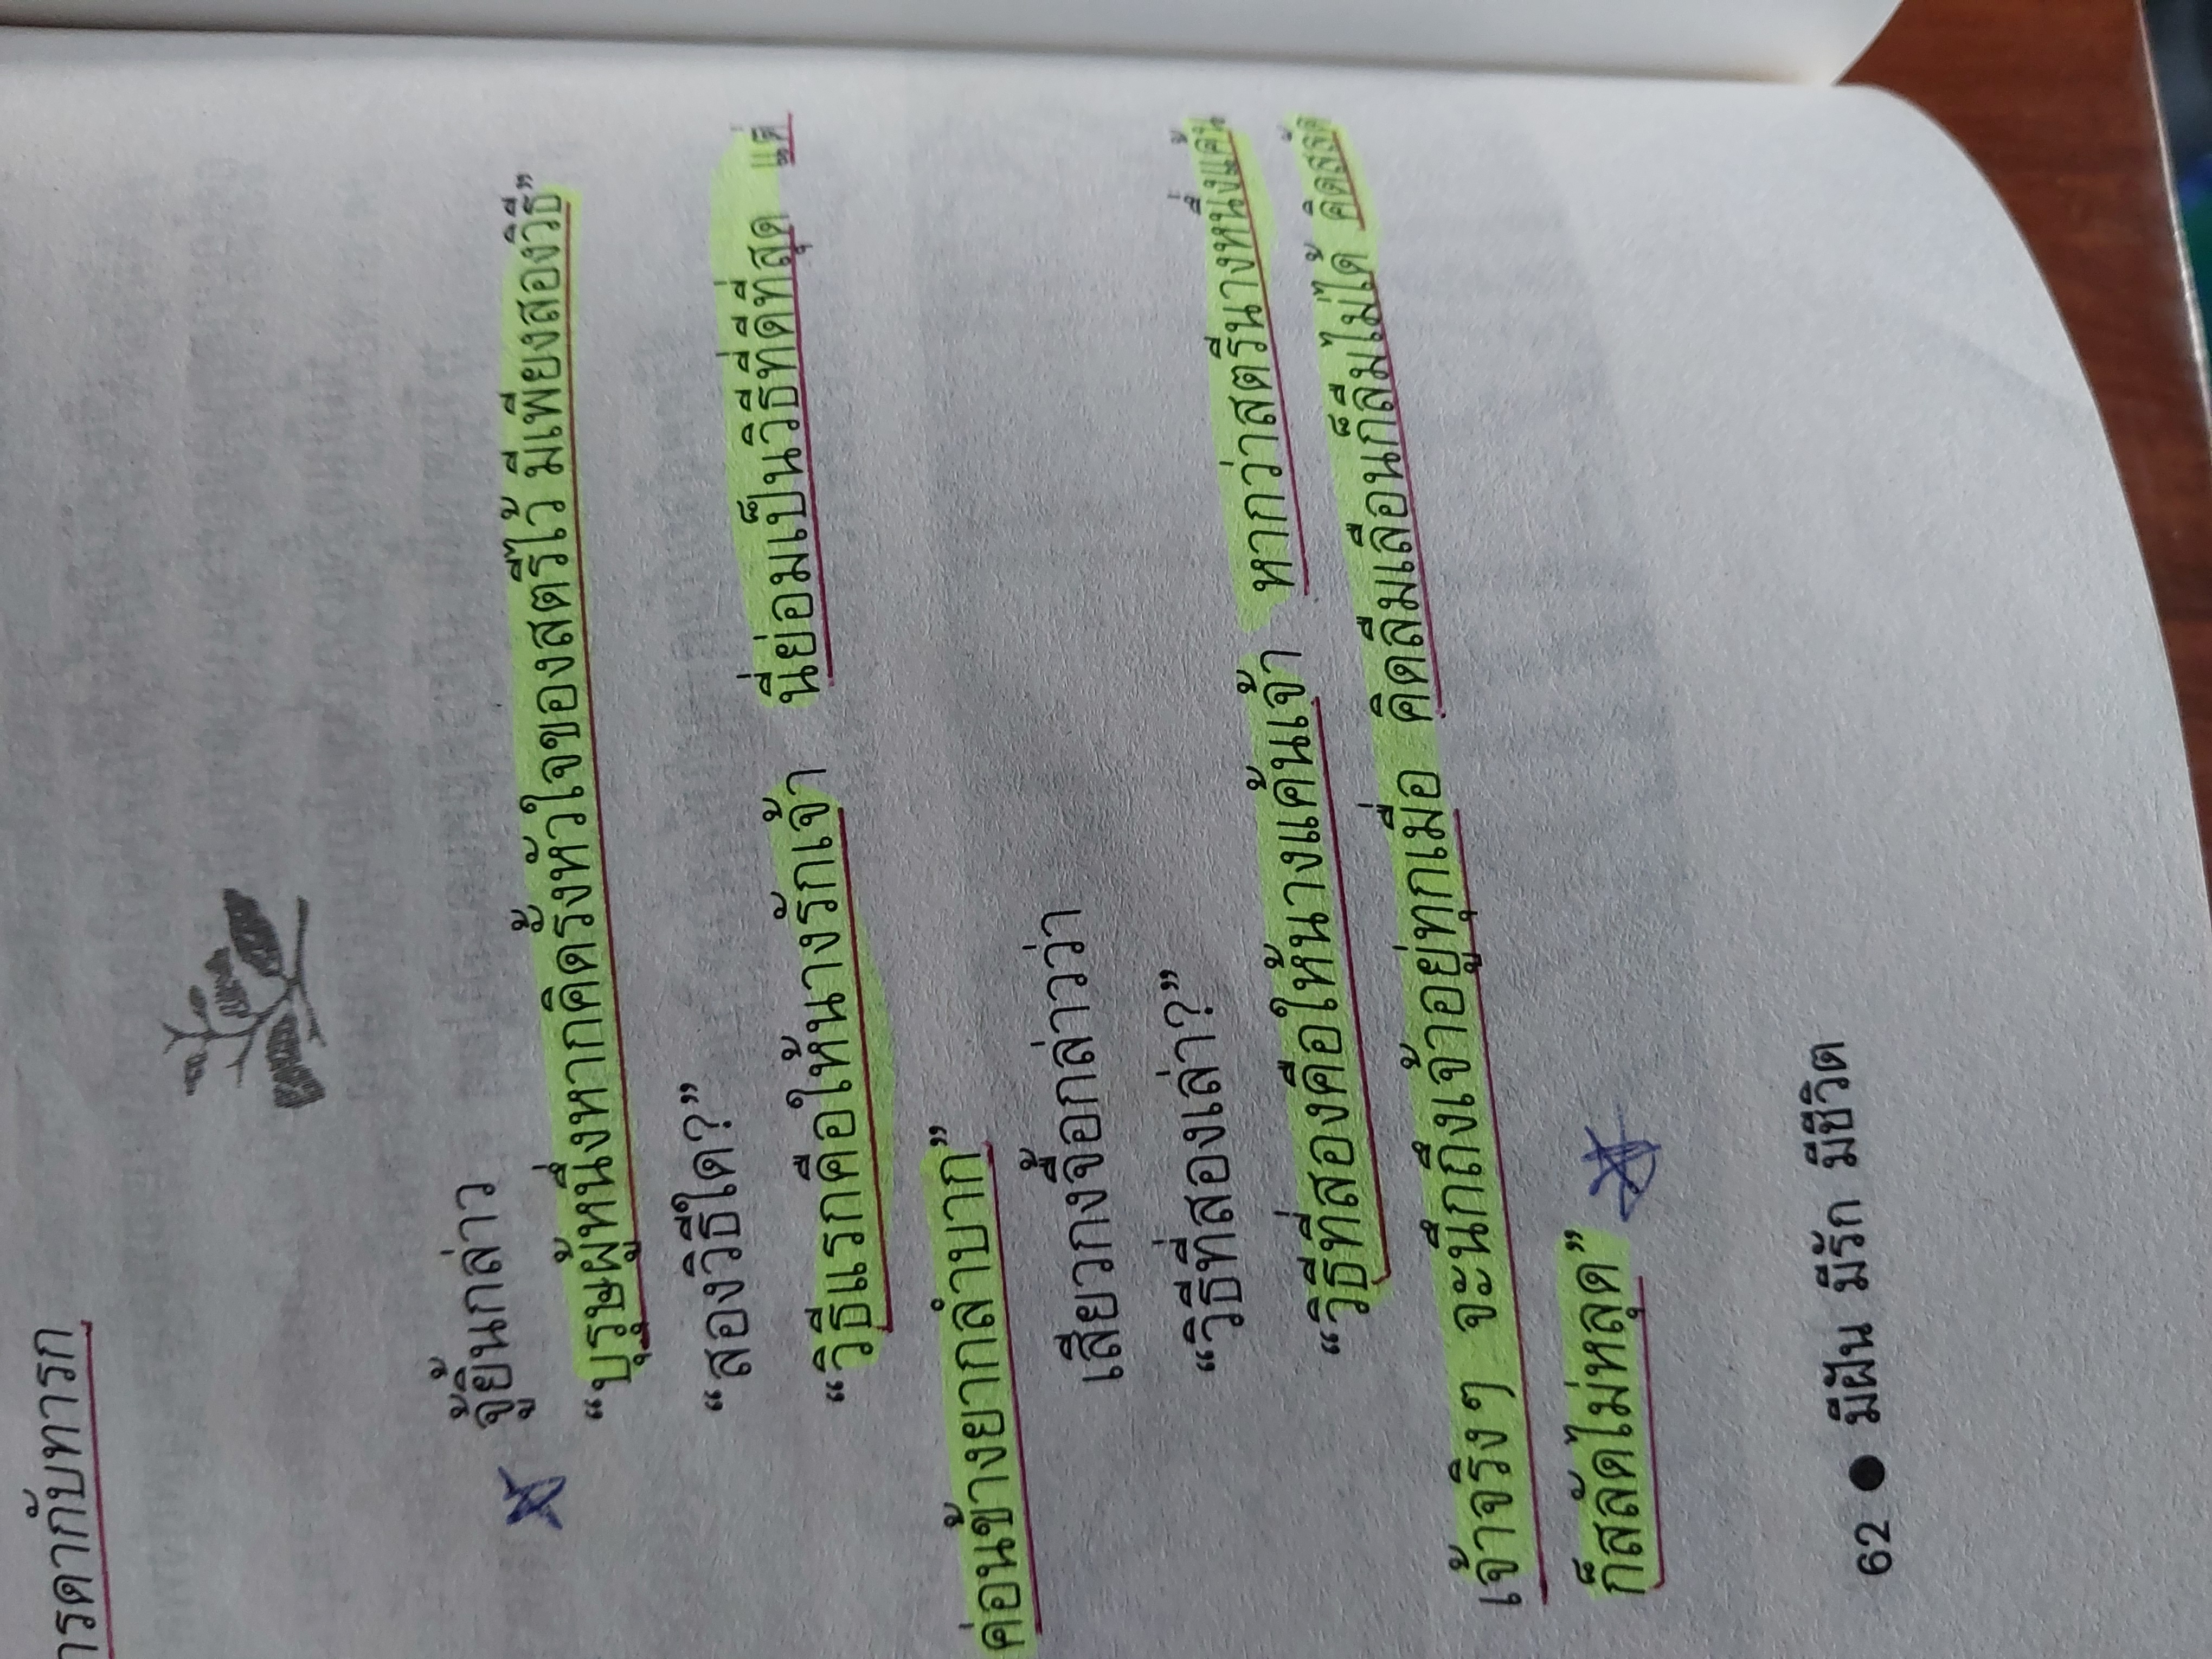 ารดากับทารก
จู้ยินกล่าว
“บุรุษผู้หนึ่งหากคิดรั้งหัวใจของสตรีไว้ มีเพียงสองวิธี”
“สองวิธีใด?”
“วิธีแรกคือให้นางรักเจ้า นี่ย่อมเป็นวิธีที่ดีที่สุด แต่
ค่อนข้างยากลำบาก”
เสียวกงจื้อกล่าวว่า
“วิธีที่สองเล่า?”
“วิธีที่สองคือให้นางแค้นเจ้า หากว่าสตรีนางหนึ่งแค้น
เจ้าจริงๆ จะนึกถึงเจ้าอยู่ทุกเมื่อ คิดลืมเลือนก็ลืมไม่ได้ คิดสลัด
ก็สลัดไม่หลุด”
62 ● มีฝัน มีรัก มีชีวิต